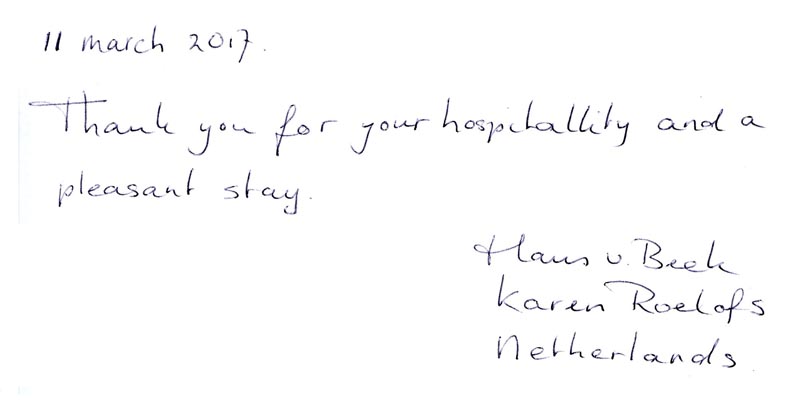 11 march 2017.
Thank you for your hospitallity and a
pleasant stay.
Hans v. Beek
Karen Roelofs
Netherlands